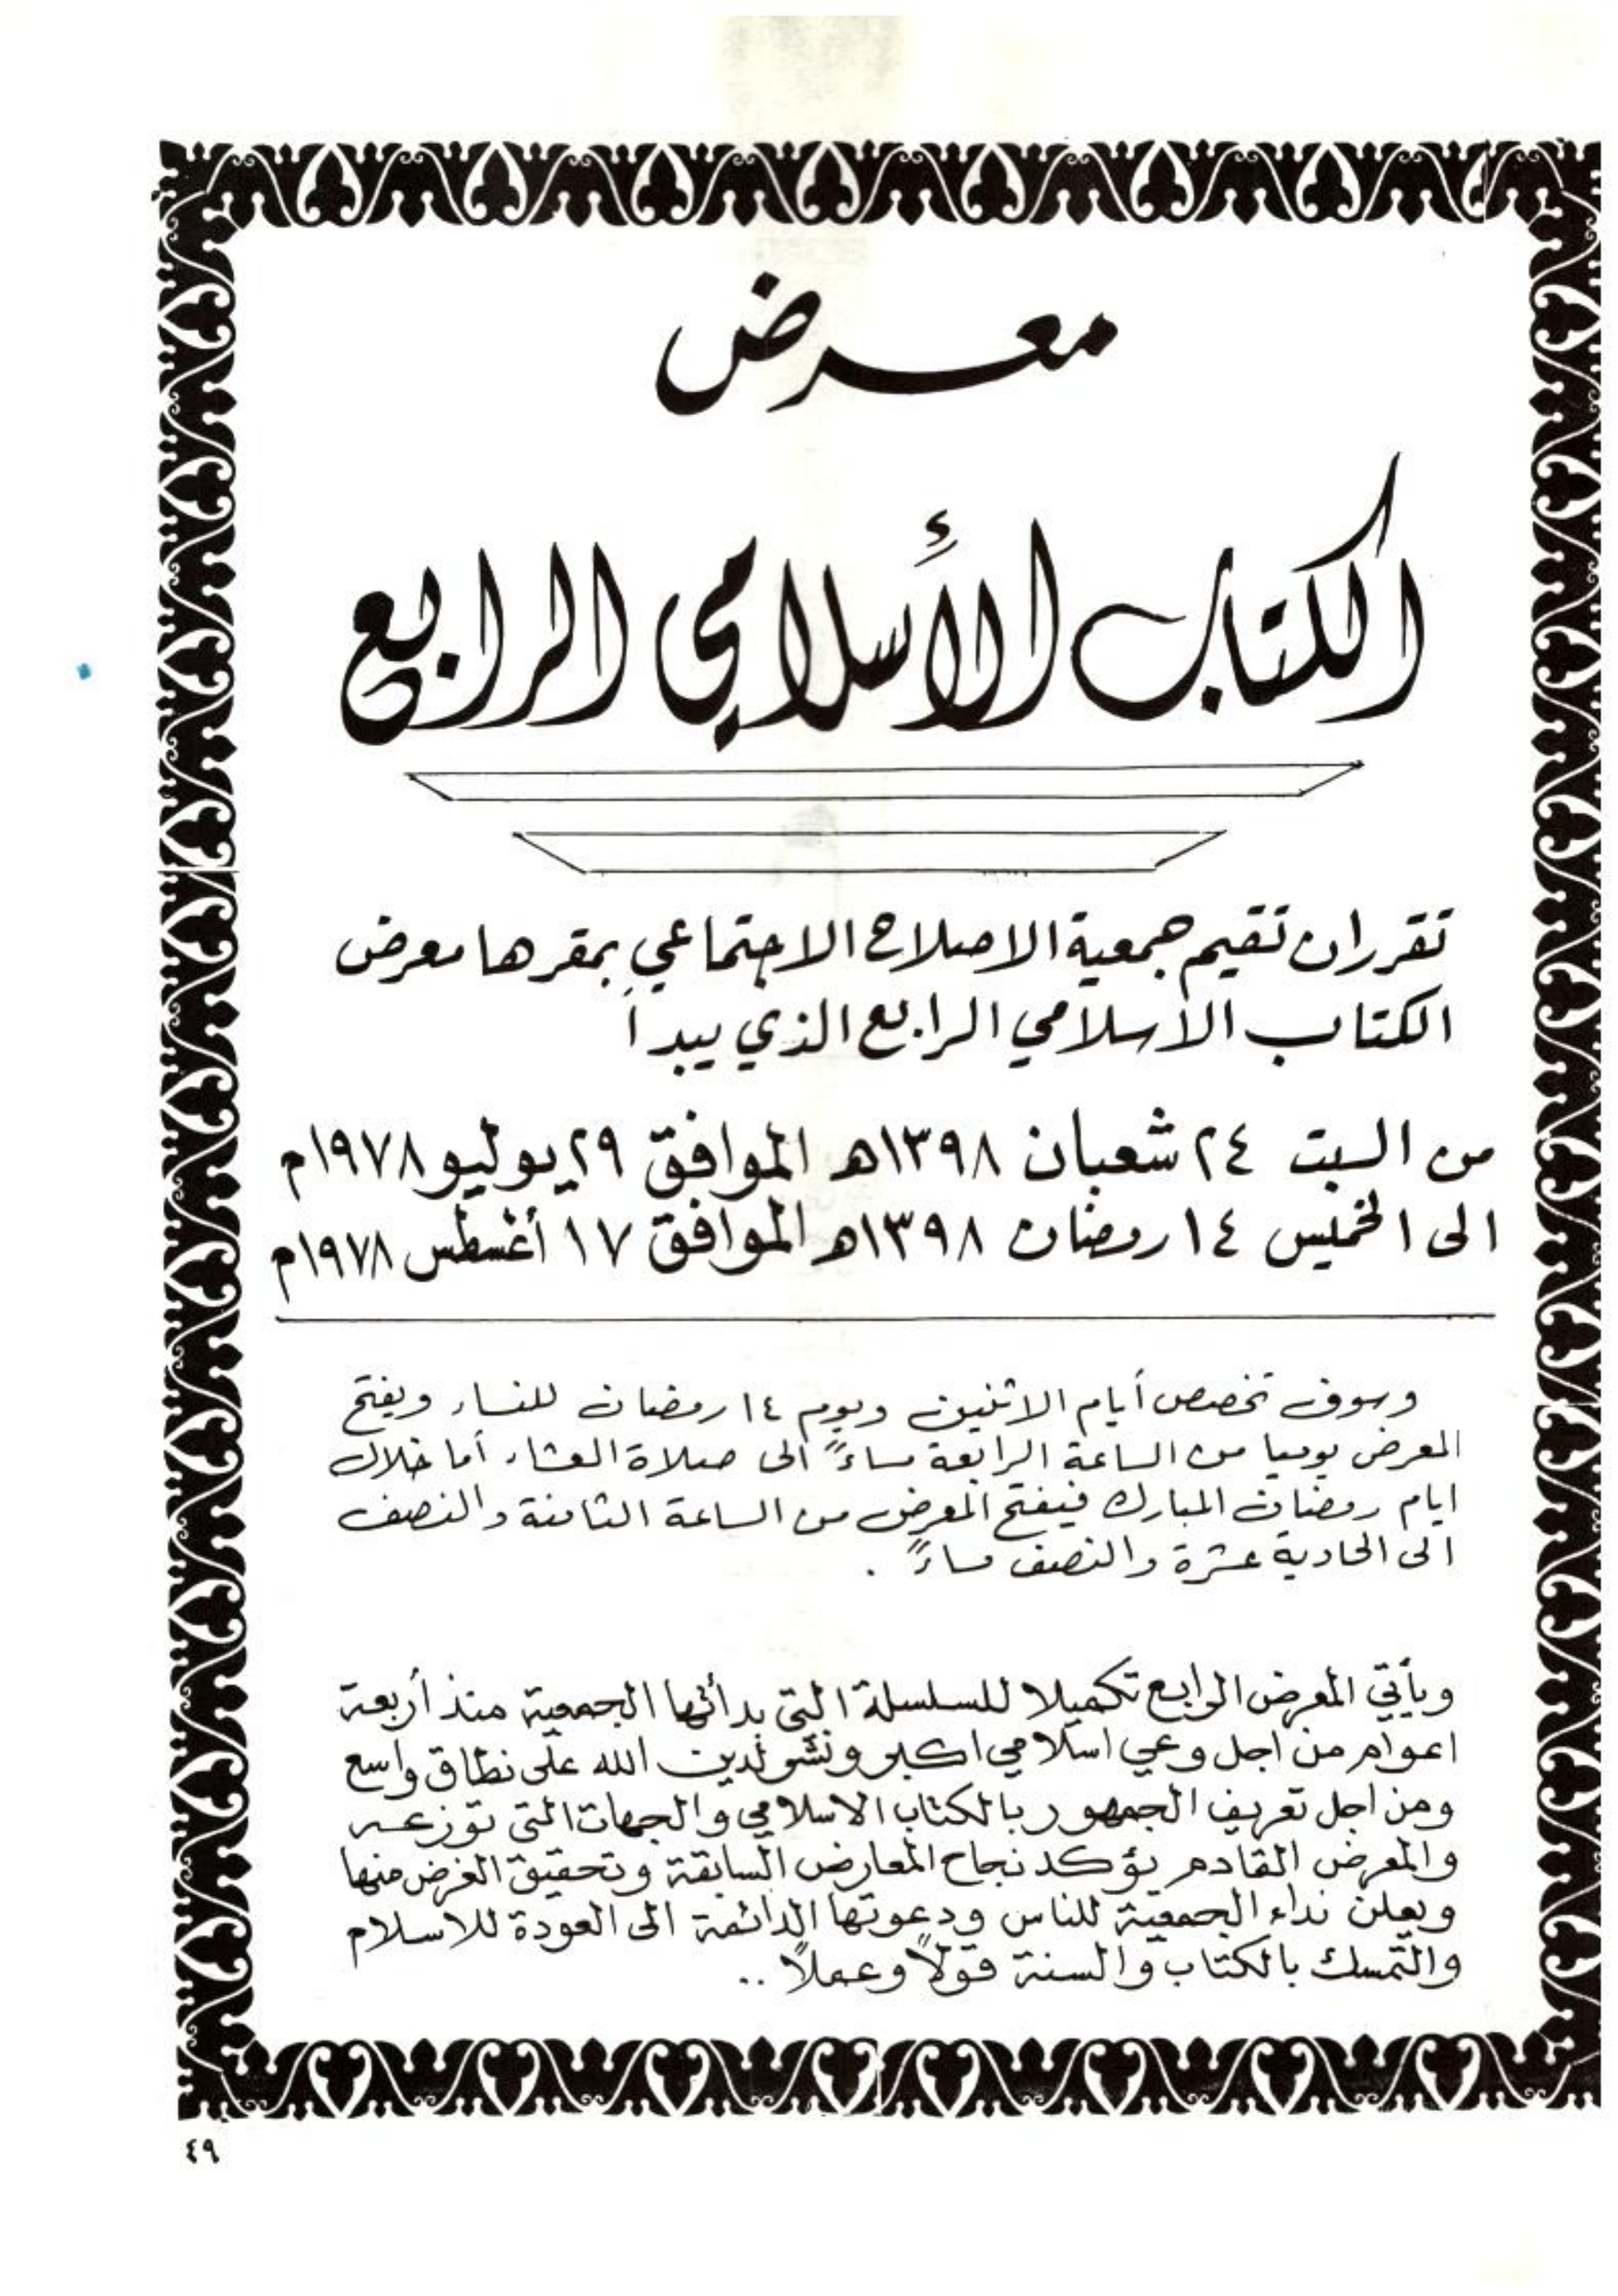 معرض
الكتاب الأسلامي الرابع
تقرر ان تقيم جمعية الاصلاح الاجتماعي بمقرها معرض
الكتاب الاسلامي الرابع الذي يبدأ
من السبت ٢٤ شعبان ١٣٩٨هـ الموافق ٢٩ يوليو ١٩٧٨م
الى الخميس ١٤ رمضان ١٣٩٨هـ الموافق ١٧ أغسطس ١٩٧٨م
وسوف تخصص أيام الاثنين ويوم ١٤ رمضان للنساء ويفتح
المعرض يوميا من الساعة الرابعة مساءً الى صلاة العشاء أما خلال
ايام رمضان المبارك فيفتح المعرض من الساعة الثامنة والنصف
الى الحادية عشرة والنصف مساءً .
ويأتي المعرض الرابع تكميلا للسلسلة التي بدأتها الجمعية منذ أربعة
اعوام من اجل وعي اسلامي اكبر ونشر لدين الله على نطاق واسع
ومن اجل تعريف الجمهور بالكتاب الاسلامي والجهات التي توزعه
والمعرض القادم يؤكد نجاح المعارض السابقة وتحقيق الغرض منها
ويعلن نداء الجمعية للناس ودعوتها الدائمة الى العودة للاسلام
والتمسك بالكتاب والسنة قولاً وعملاً ..
٤٩